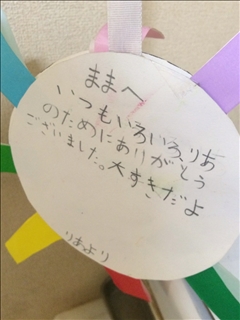 ままへ
いつもいろいろ、りあ
のためにありがとう
ございました。大すきだよ
りあより